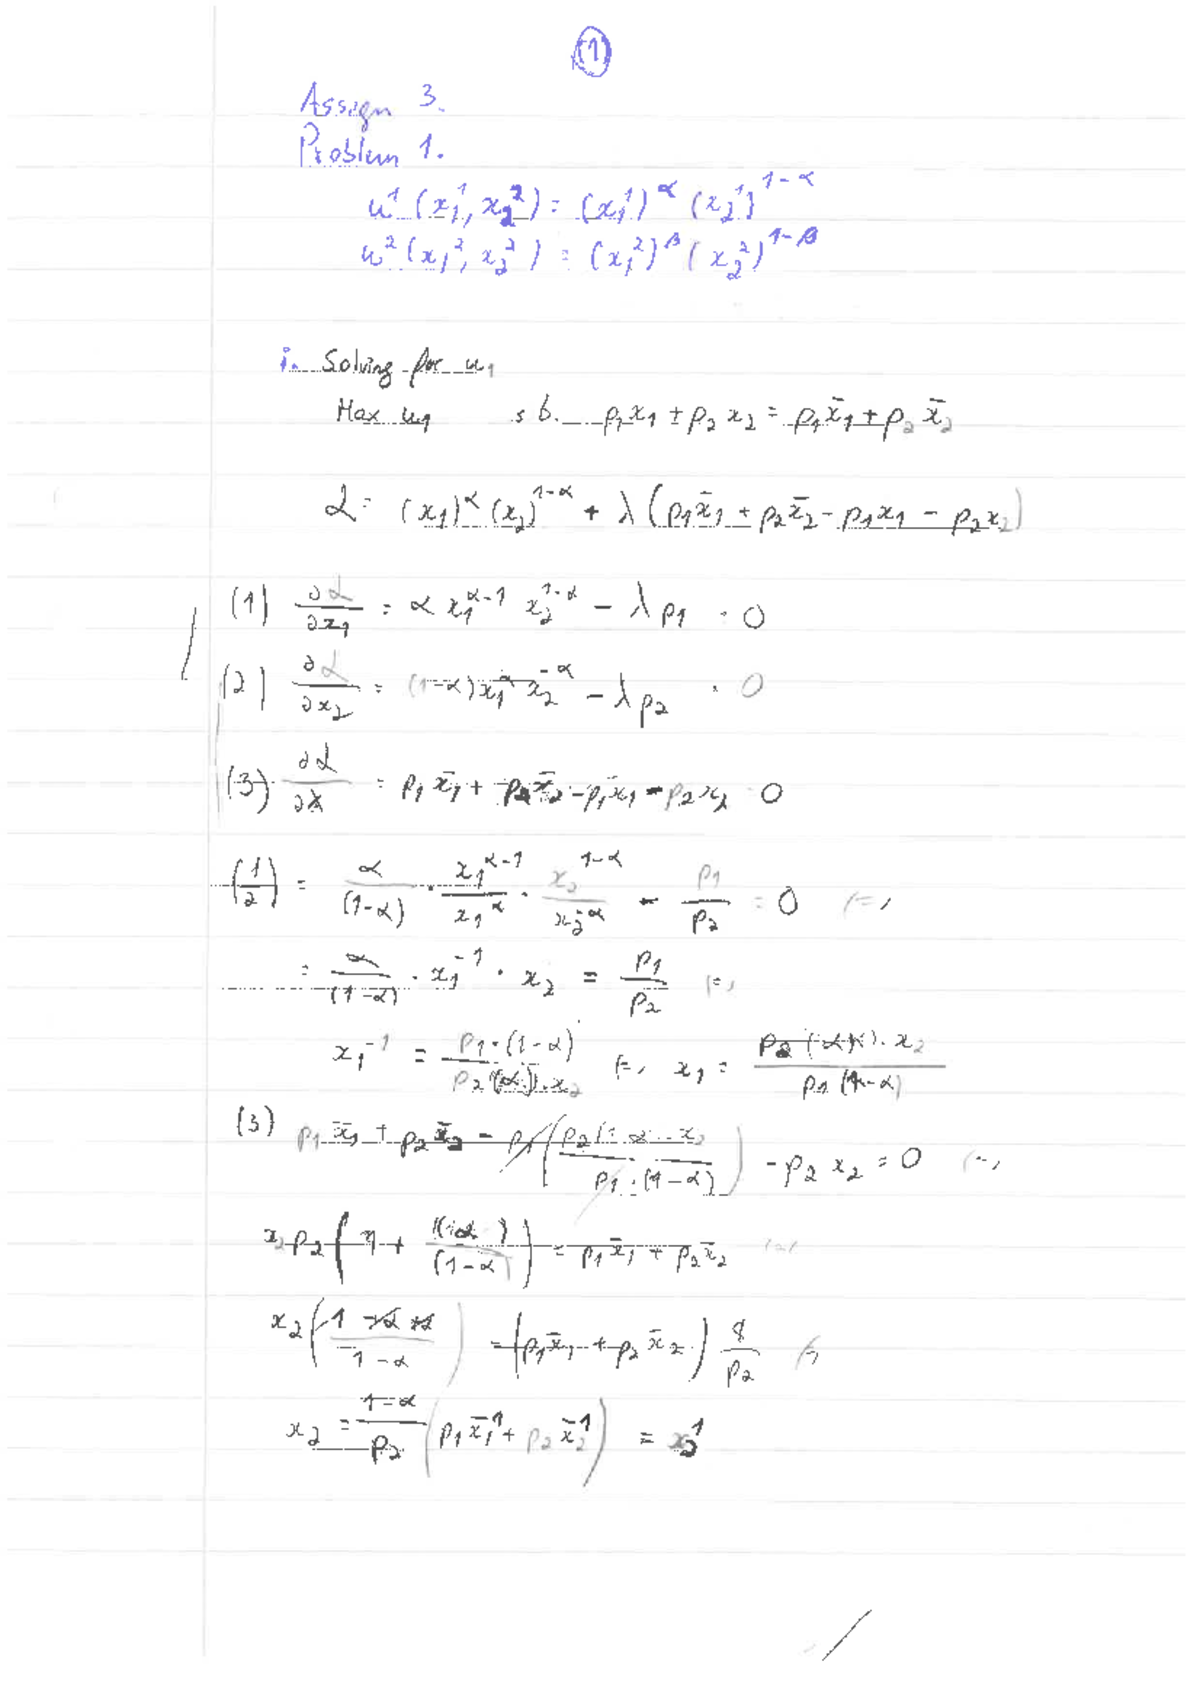 (1)
Assign 3.
Problem 1.
u¹(x₁¹, x₂²) = (x₁¹)^α (x₂¹)^{1-α}
u²(x₁², x₂²) = (x₁²)^β (x₂²)^{1-β}
i. Solving for u₁
Max u₁ s.t. p₁x₁ + p₂x₂ = p₁x̄₁ + p₂x̄₂
ℒ = (x₁)^α (x₂)^{1-α} + λ(p₁x̄₁ + p₂x̄₂ - p₁x₁ - p₂x₂)
(1) ∂ℒ/∂x₁ = α x₁^{α-1} x₂^{1-α} - λp₁ = 0
(2) ∂ℒ/∂x₂ = (1-α)x₁^α x₂^{-α} - λp₂ = 0
(3) ∂ℒ/∂λ = p₁x̄₁ + p₂x̄₂ - p₁x₁ - p₂x₂ = 0
(1/2) = α/(1-α) · x₁^{α-1}/x₁^α · x₂^{1-α}/x₂^{-α} - p₁/p₂ = 0 (=)
= α/(1-α) · x₁^{-1} · x₂ = p₁/p₂ (=)
x₁^{-1} = p₁·(1-α)/p₂(α)·x₂ (=) x₁ = p₂(α)·x₂/p₁(1-α)
(3) p₁x̄₁ + p₂x̄₂ - p₁(p₂ α·x₂/p₁·(1-α)) - p₂x₂ = 0 (=)
x₂p₂(1 + (α)/(1-α)) = p₁x̄₁ + p₂x̄₂ (=)
x₂(1-α+α/1-α) = (p₁x̄₁ + p₂x̄₂) 1/p₂ (=)
x₂ = 1-α/p₂ (p₁x̄₁¹ + p₂x̄₂¹) = x₂¹